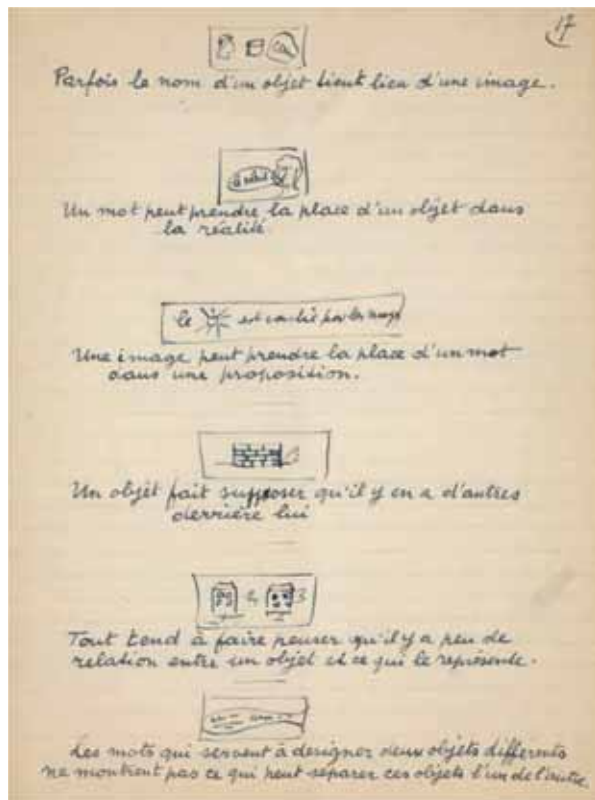 17
Parfois le nom d'un objet tient lieu d'une image.
Un mot peut prendre la place d'un objet dans
la réalité
le est par les
Une image peut prendre la place d'un mot
dans une proposition.
Un objet fait supposer qu'il y en a d'autres
derrière lui
Tout tend à faire penser qu'il y a peu de
relation entre un objet et ce qui le représente.
Les mots qui servent à designer deux objets différents
ne montrent pas ce qui peut séparer ces objets l'un de l'autre.